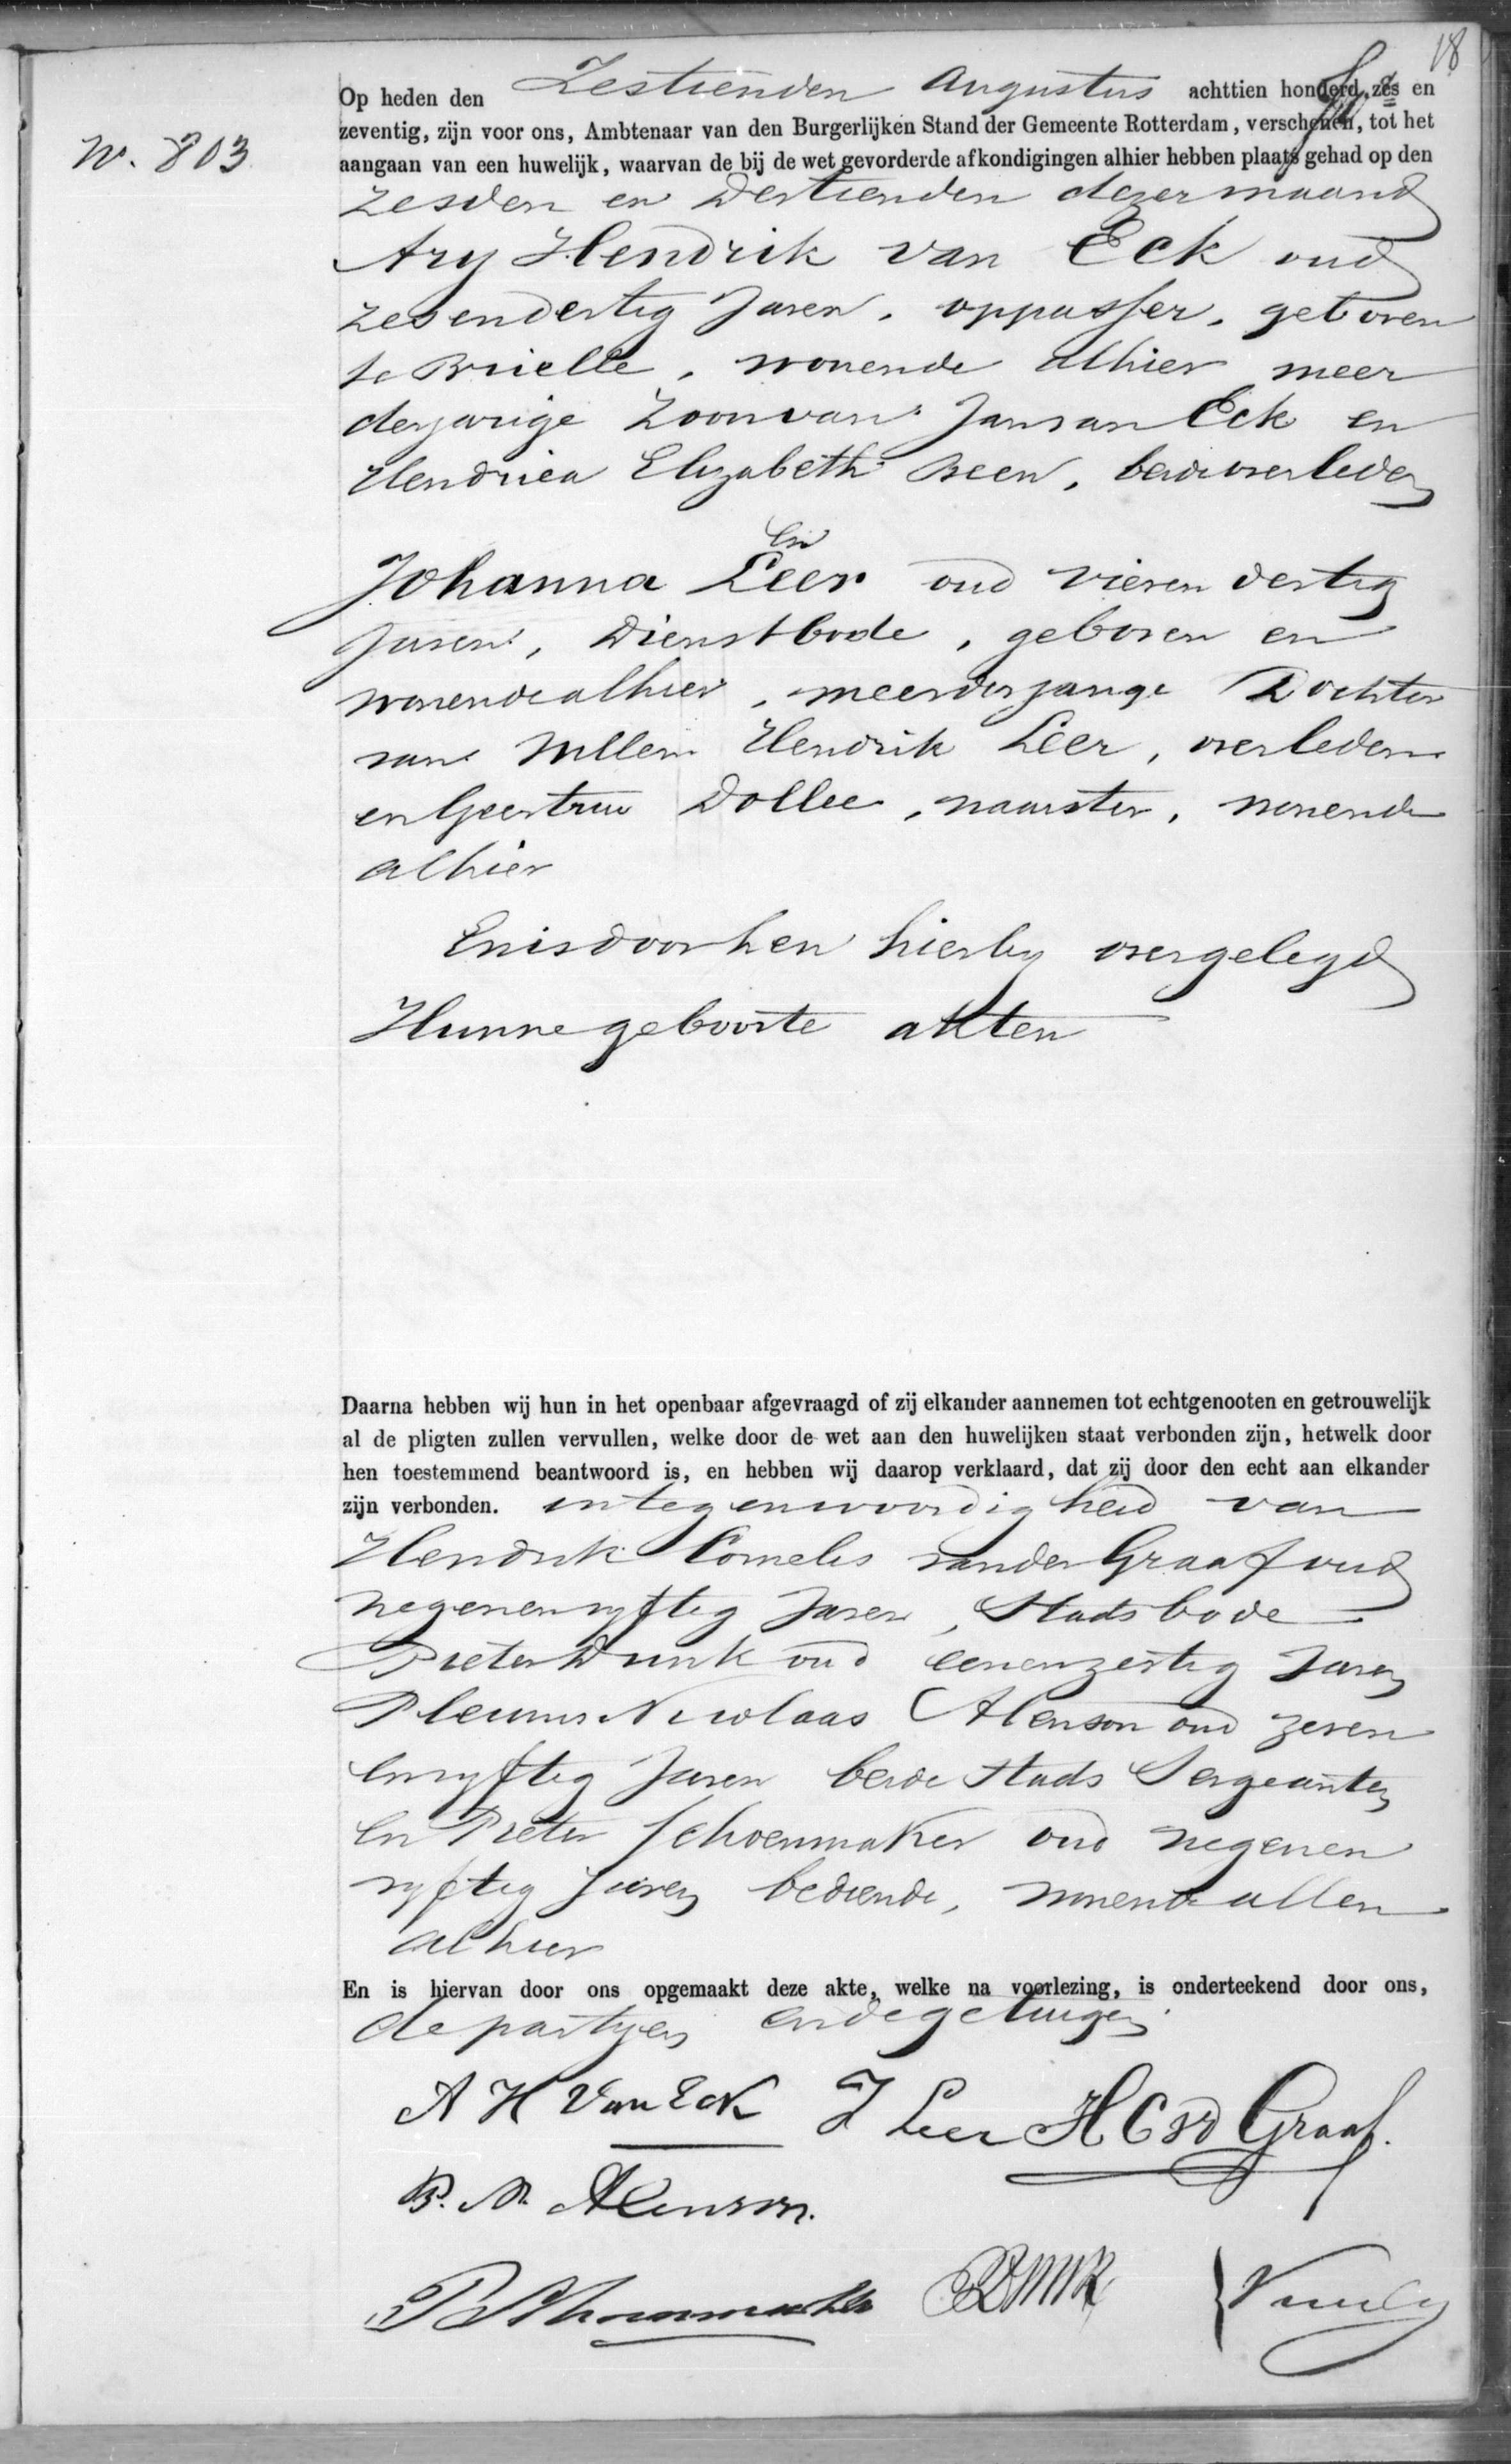 18
Op heden den Zestienden Augustus achttien honderd zes en
zeventig, zijn voor ons, Ambtenaar van den Burgerlijken Stand der Gemeente Rotterdam, verschenen, tot het
N. 803
aangaan van een huwelijk, waarvan de bij de wet gevorderde afkondigingen alhier hebben plaats gehad op den
zesden en dertienden dezer maand
Ary Hendrik van Eck oud
zesendertig Jaren, oppasser, geboren
te Brielle, wonende alhier meer
derjarige Zoon van Jan van Eck en
Hendrica Elizabeth Been, beide overleden
en
Johanna Leer oud vieren dertig
Jaren, Dienstbode, geboren en
wonende alhier, meerderjarige Dochter
van Willem Hendrik Leer, overleden
en Geertrui Dollee, naaister, wonende
alhier
En is door hen hierby overgelegd
Hunne geboorte akten
Daarna hebben wij hun in het openbaar afgevraagd of zij elkander aannemen tot echtgenooten en getrouwelijk
al de pligten zullen vervullen, welke door de wet aan den huwelijken staat verbonden zijn, hetwelk door
hen toestemmend beantwoord is, en hebben wij daarop verklaard, dat zij door den echt aan elkander
zijn verbonden. in tegenwoordigheid van
Hendrik Cornelis van der Graaf oud
negenenvyftig Jaren, Stadsbode
Pieter Dunk oud eenenzestig Jaren
Pleunus Nicolaas Alenson oud zeven
envyftig Jaren beide Stads Sergeanten
en Pieter Schoenmaker oud negenen
vyftig Jaren bediende, wonende allen
alhier
En is hiervan door ons opgemaakt deze akte, welke na voorlezing, is onderteekend door ons,
de partyen en de getuigen.
A H Van Eck J Leer H C vd Graaf.
P. N. Alenson.
P Schoenmaker PDunk